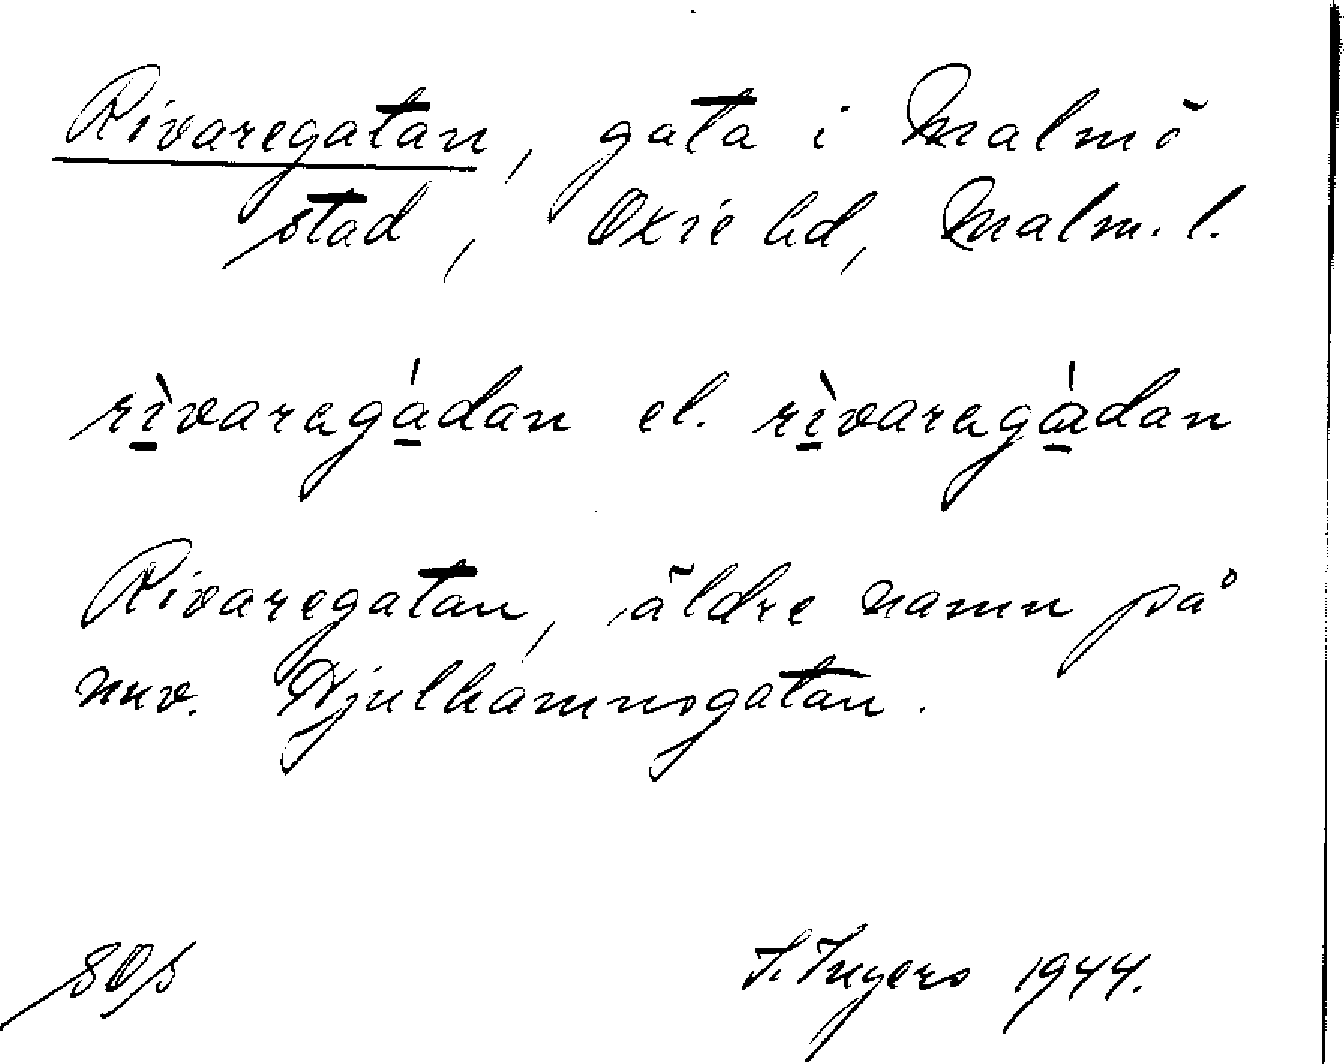 Rivaregatan, gata i Malmö
stad, Oxie hd, Malm. l.
rìvaregádan el. rìvaregàdan
Rivaregatan, äldre namn på
nuv. Hjulhamnsgatan.
I. Ingers 1944.